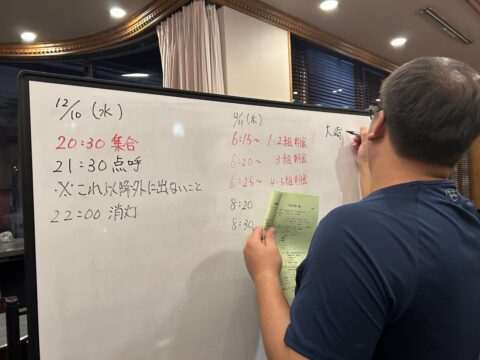 12/10 (水)
20:30 集合
21:30 点呼
※これ以降外に出ないこと
22:00 消灯
12/11 (木)
6:15~ 1-2組 朝食
6:20~ 3組 朝食
6:25~ 4-5組 朝食
8:20
8:30